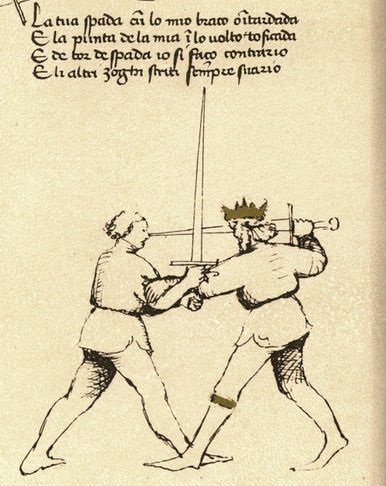 La tua spada cū lo mio braço o ītardada
E la punta de la mia ī lo volto to ficada
E de tor de spada io si faço contrario
E li altri zoghi striti sēpre suario